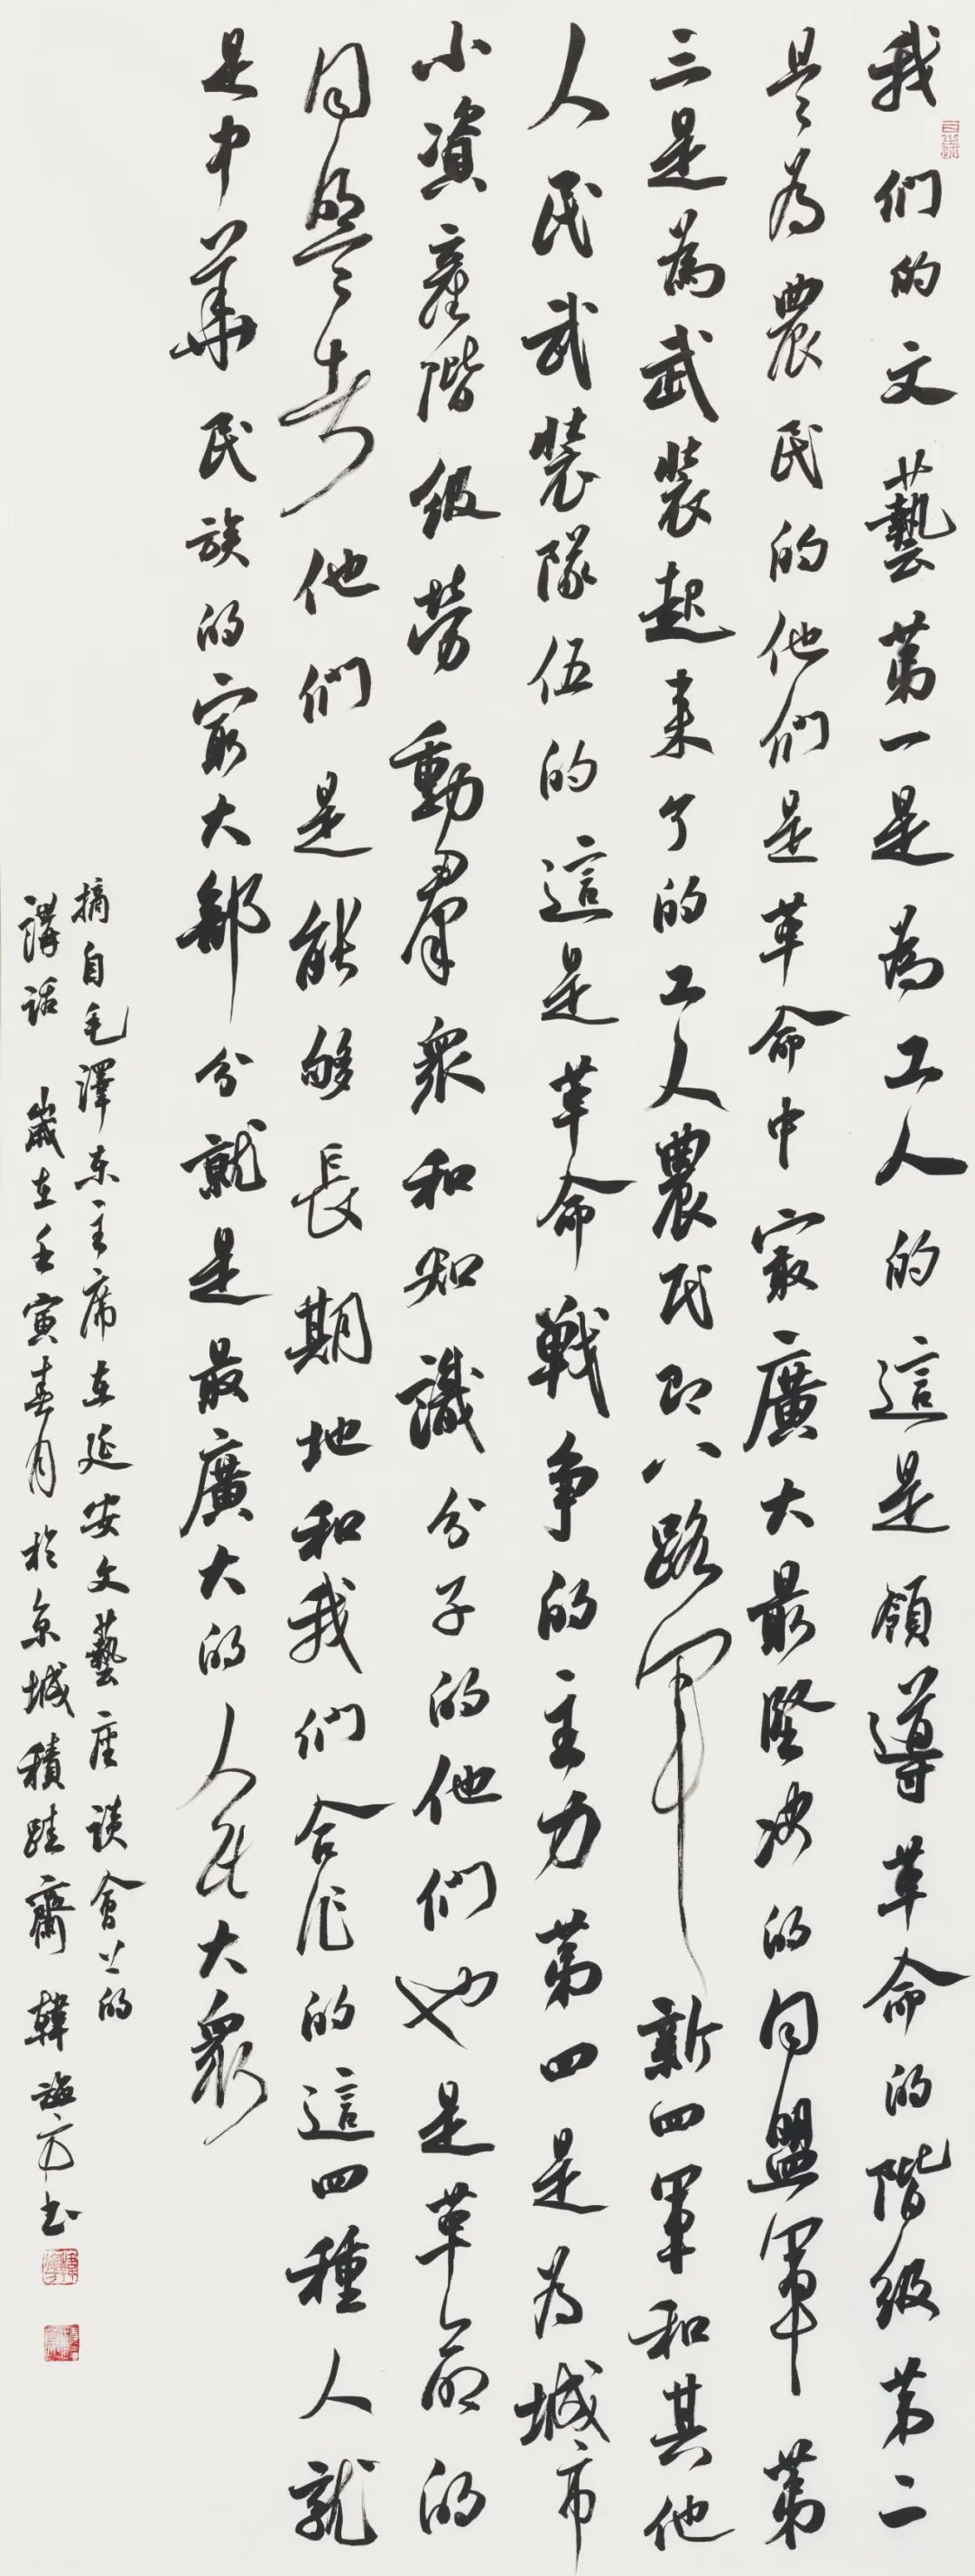 我们的文藝第一是為工人的這是領導革命的階级第二
是為農民的他们是革命中冣廣大最堅决的同盟軍第
三是為武裝起来了的工人農民即八路軍新四軍和其他
人民武裝隊伍的這是革命戰争的主力第四是為城市
小資產階级勞動羣衆和知識分子的他們也是革命的
同盟者他們是能够長期地和我们合作的這四種人就
是中華民族的冣大部分就是最廣大的人民大衆
摘自毛澤东主席在延安文藝座談會上的
講話 歲在壬寅春月於京城積跬齋韓書